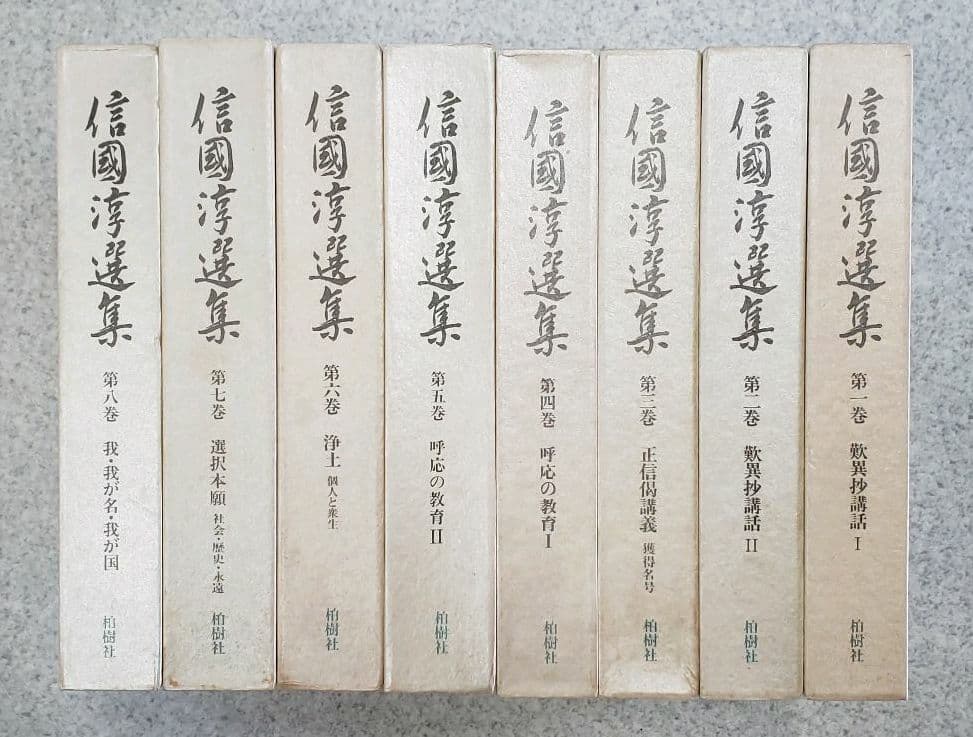 信國淳選集 第一巻 歎異抄講話 I 柏樹社
信國淳選集 第二巻 歎異抄講話 II 柏樹社
信國淳選集 第三巻 正信偈講義 獲得名号 柏樹社
信國淳選集 第四巻 呼応の教育 I 柏樹社
信國淳選集 第五巻 呼応の教育 II 柏樹社
信國淳選集 第六巻 浄土 個人と衆生 柏樹社
信國淳選集 第七巻 選択本願 社会・歴史・永遠 柏樹社
信國淳選集 第八巻 我・我が名・我が国 柏樹社